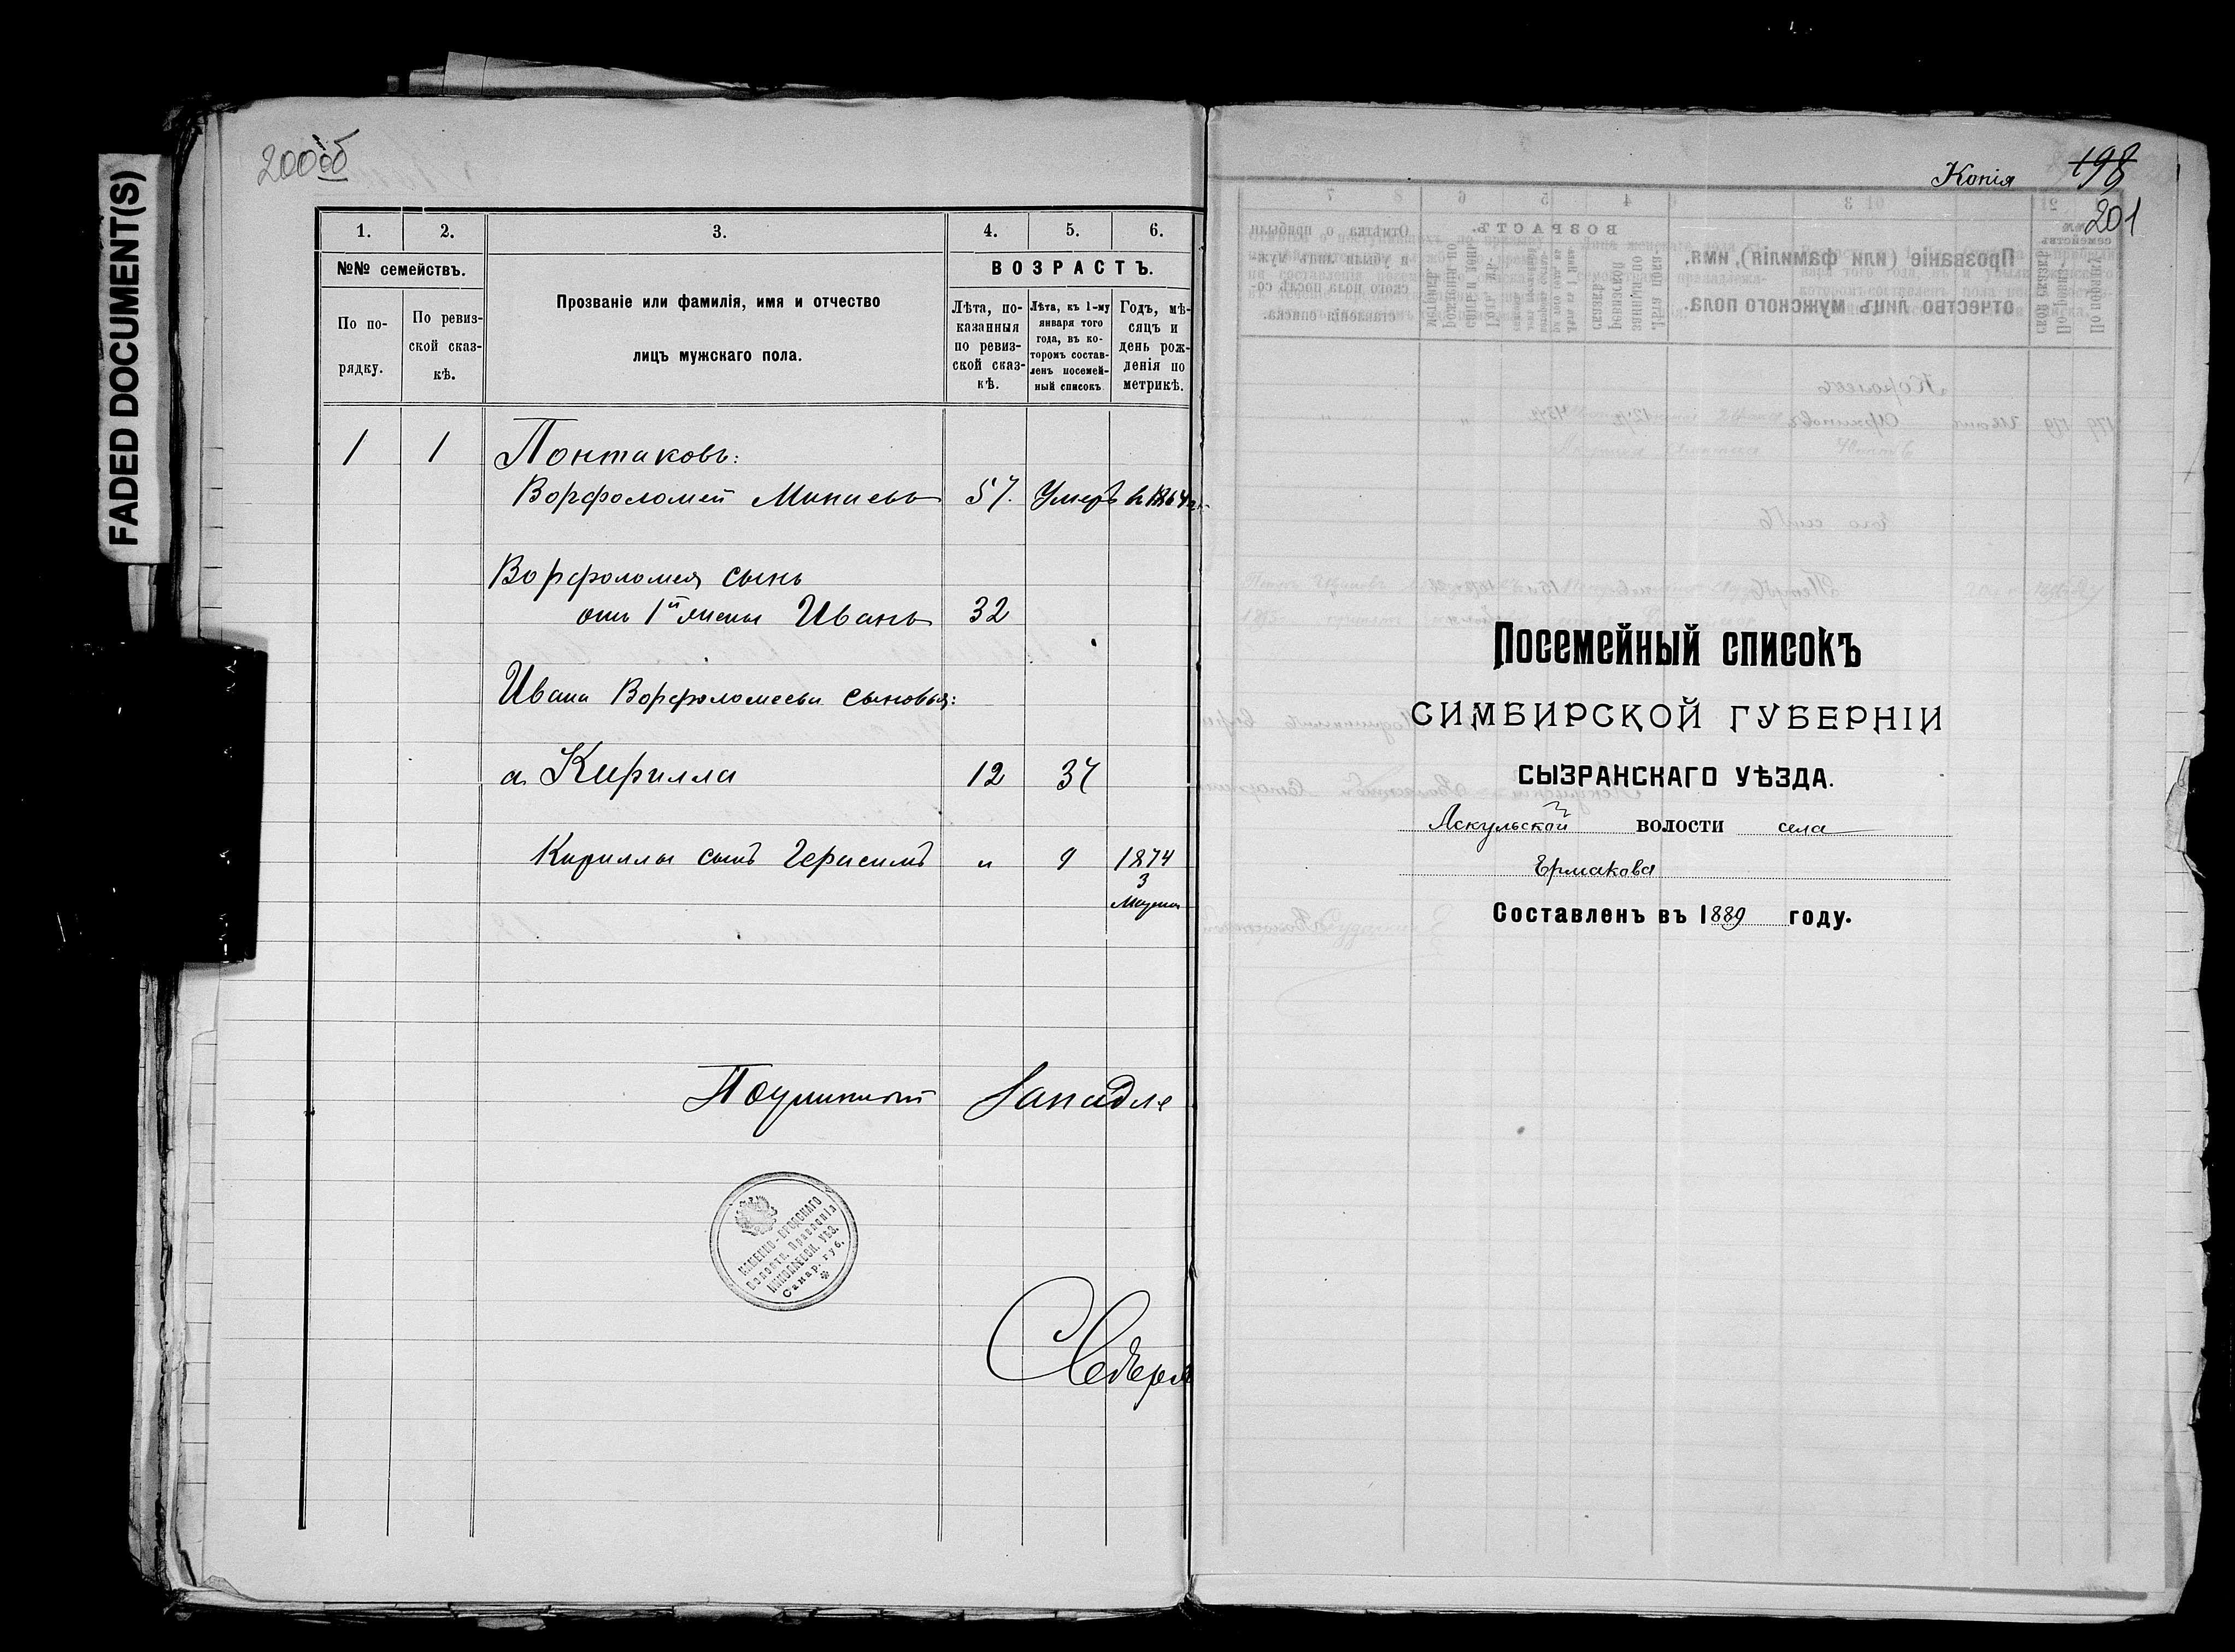 FADED DOCUMENT(S)
200 об
1. 2. 3. 4. 5. 6.
№№ семействъ.
По по-
рядку.
По ревиз-
ской сказ-
кѣ.
Прозваніе или фамилія, имя и отчество
лицъ мужскаго пола.
ВОЗРАСТЪ.
Лѣта, по-
казанныя
по ревиз-
ской сказ-
кѣ.
Лѣта, къ 1-му
января того
года, въ ко-
торомъ состав-
ленъ посемей-
ный списокъ.
Годъ, мѣ-
сяцъ и
день рож-
денія по
метрикѣ.
1 1 Понтаковъ:
Ворфоломей Минаевъ 57. Умеръ въ 1864
Ворфоломея сынъ
отъ 1й жены Иванъ 32
Ивана Ворфоломеева сыновья:
а Кирилла 12 37
Кириллы сынъ Герасимъ „ 9 1874
3
Марта
КАМЕННО-БРОДСКАГО
Волостн. Правленія
НИКОЛАЕВСК. УѢЗ.
Самар. губ.
Копія
198
201
Посемейный списокъ
СИМБИРСКОЙ ГУБЕРНІИ
СЫЗРАНСКАГО УѢЗДА.
Аскульской волости села
Ермакова
Составленъ въ 1889 году.